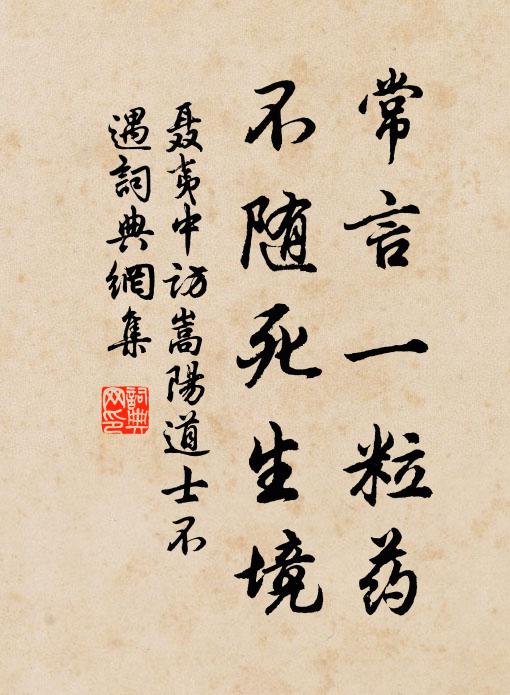 常言一粒药
不随死生境
聂夷中访嵩陽道士不
遇詞典網集
詞典
网印